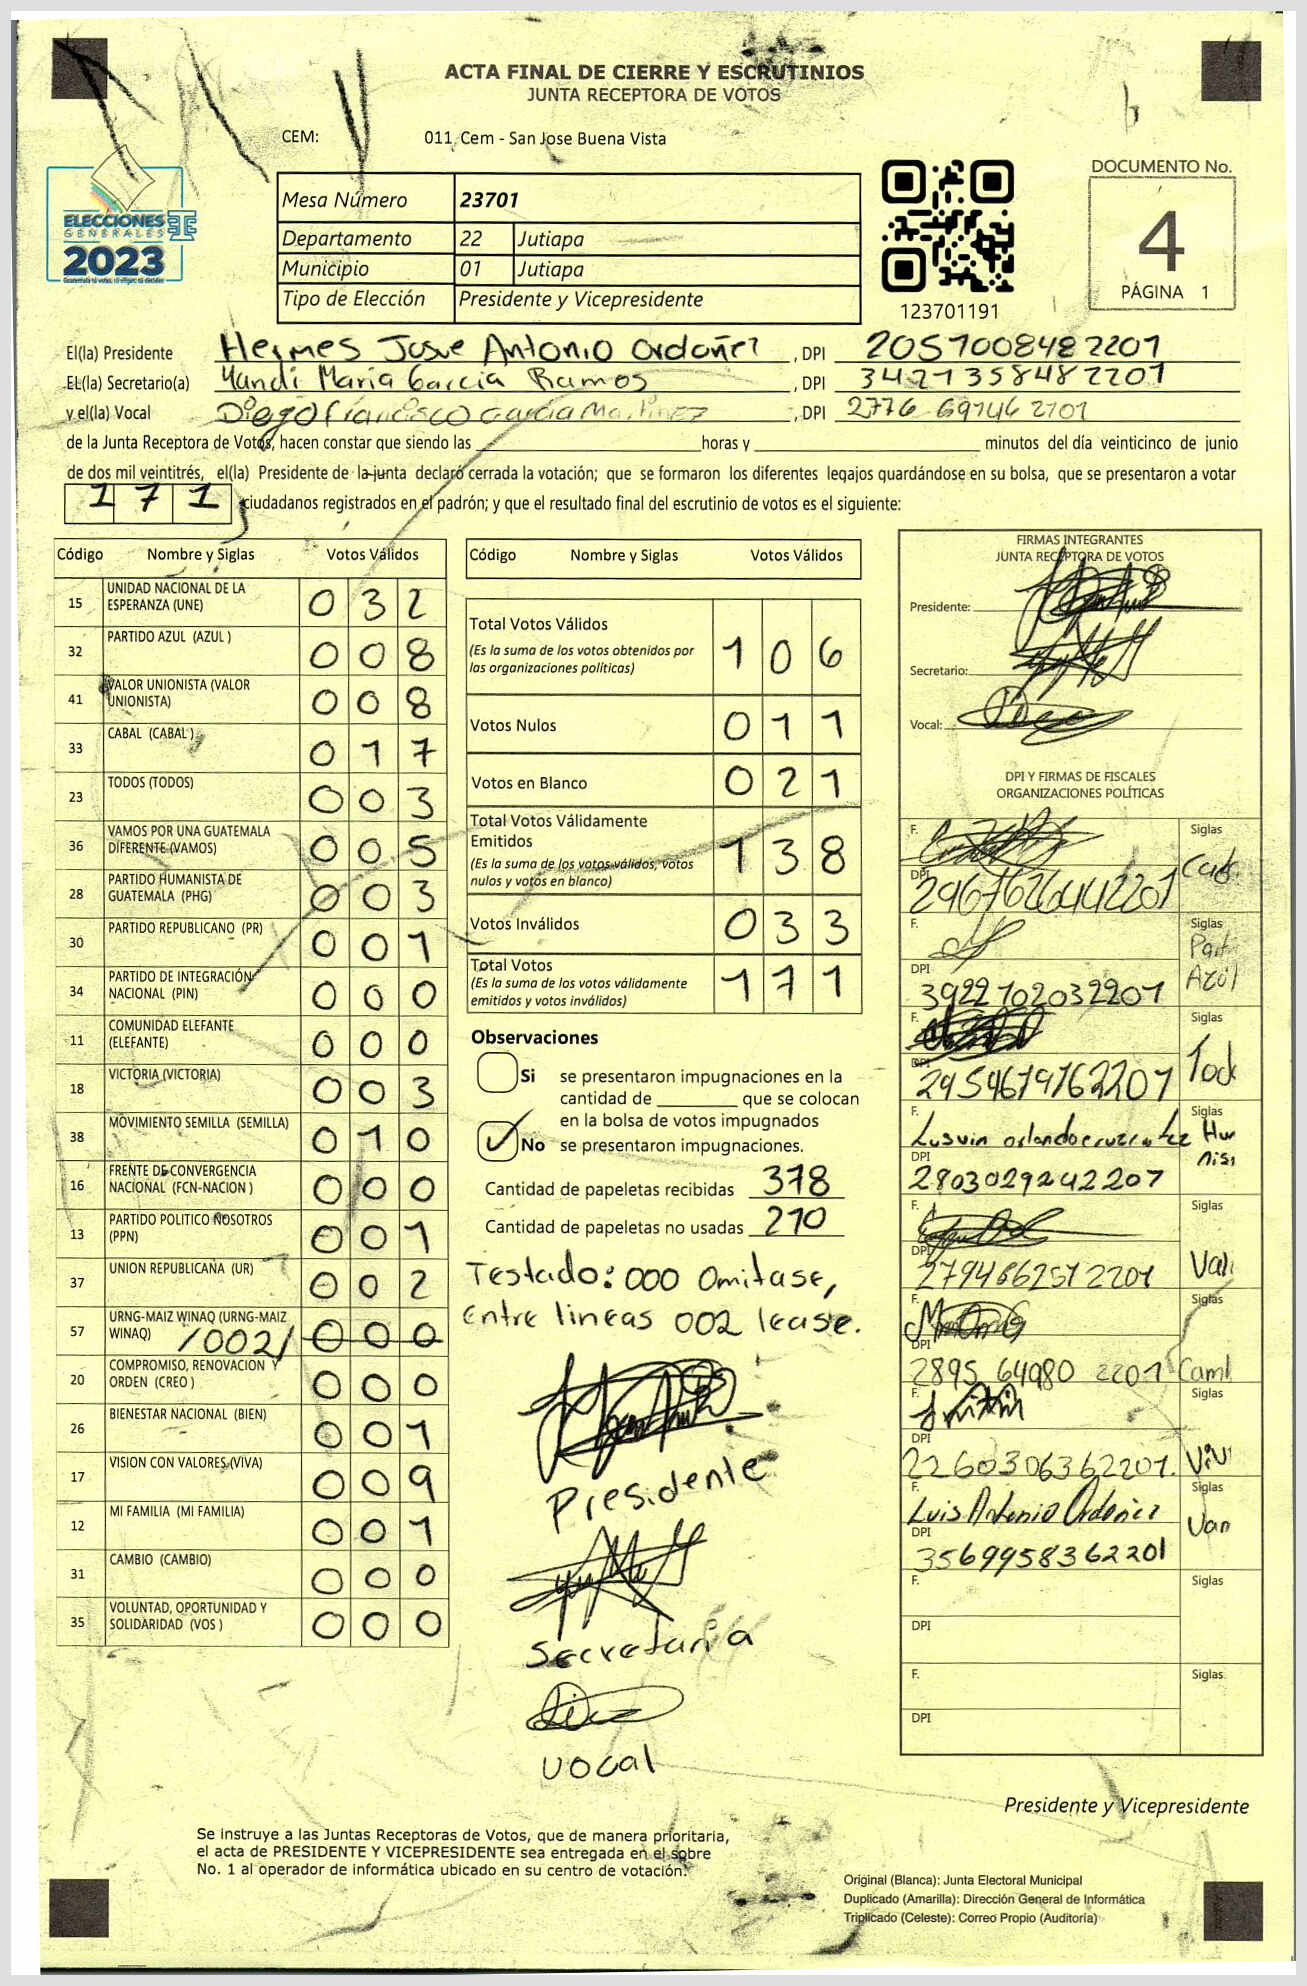 ACTA FINAL DE CIERRE Y ESCRUTINIOS
JUNTA RECEPTORA DE VOTOS
CEM: 011 Cem - San Jose Buena Vista
ELECCIONES
GENERALES
2023
Mesa Número 23701
Departamento 22 Jutiapa
Municipio 01 Jutiapa
Tipo de Elección Presidente y Vicepresidente
123701191
DOCUMENTO No.
4
PÁGINA 1
El(la) Presidente Hermes Josue Antonio Ordoñez, DPI 2057008482201
EL(la) Secretario(a) Yandi Maria Garcia Ramos, DPI 3421358482201
y el(la) Vocal Diego Francisco Garcia Martinez, DPI 2776 69146 2201
de la Junta Receptora de Votos, hacen constar que siendo las horas y minutos del día veinticinco de junio
de dos mil veintitrés, el(la) Presidente de la junta declaró cerrada la votación; que se formaron los diferentes legajos guardándose en su bolsa, que se presentaron a votar
171 ciudadanos registrados en el padrón; y que el resultado final del escrutinio de votos es el siguiente:
Código Nombre y Siglas Votos Válidos
15 UNIDAD NACIONAL DE LA ESPERANZA (UNE) 032
32 PARTIDO AZUL (AZUL ) 008
41 VALOR UNIONISTA (VALOR UNIONISTA) 008
33 CABAL (CABAL ) 017
23 TODOS (TODOS) 003
36 VAMOS POR UNA GUATEMALA DIFERENTE (VAMOS) 005
28 PARTIDO HUMANISTA DE GUATEMALA (PHG) 003
30 PARTIDO REPUBLICANO (PR) 001
34 PARTIDO DE INTEGRACIÓN NACIONAL (PIN) 000
11 COMUNIDAD ELEFANTE (ELEFANTE) 000
18 VICTORIA (VICTORIA) 003
38 MOVIMIENTO SEMILLA (SEMILLA) 010
16 FRENTE DE CONVERGENCIA NACIONAL (FCN-NACION ) 000
13 PARTIDO POLITICO NOSOTROS (PPN) 001
37 UNION REPUBLICANA (UR) 002
57 URNG-MAIZ WINAQ (URNG-MAIZ WINAQ) /002/ 000
20 COMPROMISO, RENOVACION Y ORDEN (CREO ) 000
26 BIENESTAR NACIONAL (BIEN) 001
17 VISION CON VALORES (VIVA) 009
12 MI FAMILIA (MI FAMILIA) 001
31 CAMBIO (CAMBIO) 000
35 VOLUNTAD, OPORTUNIDAD Y SOLIDARIDAD (VOS ) 000
Código Nombre y Siglas Votos Válidos
Total Votos Válidos 106
(Es la suma de los votos obtenidos por
las organizaciones políticas)
Votos Nulos 011
Votos en Blanco 021
Total Votos Válidamente
Emitidos 138
(Es la suma de los votos válidos, votos
nulos y votos en blanco)
Votos Inválidos 033
Total Votos 171
(Es la suma de los votos válidamente
emitidos y votos inválidos)
Observaciones
Si se presentaron impugnaciones en la
cantidad de que se colocan
en la bolsa de votos impugnados
✓ No se presentaron impugnaciones.
Cantidad de papeletas recibidas 378
Cantidad de papeletas no usadas 210
Testado: 000 Omitase,
Entre lineas 002 lease.
Presidente
Secretaria
vocal
FIRMAS INTEGRANTES
JUNTA RECEPTORA DE VOTOS
Presidente:
Secretario:
Vocal:
DPI Y FIRMAS DE FISCALES
ORGANIZACIONES POLÍTICAS
F. Siglas
DPI 2967626442201
F. Siglas Part Azul
DPI 3922702032201
F. Siglas Tod
DPI 2954619762201
F. Siglas
DPI 2803029242207
F. Siglas Val
DPI 2794662512201
F. Siglas
DPI 2895 64980 2201 Camb
F. Siglas
DPI 2260306362201. ViV
F. Luis Antonio Ordoñez Siglas
DPI 3569958362201 Vam
F. Siglas
DPI
F. Siglas
DPI
Presidente y Vicepresidente
Se instruye a las Juntas Receptoras de Votos, que de manera prioritaria,
el acta de PRESIDENTE Y VICEPRESIDENTE sea entregada en el sobre
No. 1 al operador de informática ubicado en su centro de votación.
Original (Blanca): Junta Electoral Municipal
Duplicado (Amarilla): Dirección General de Informática
Triplicado (Celeste): Correo Propio (Auditoría)